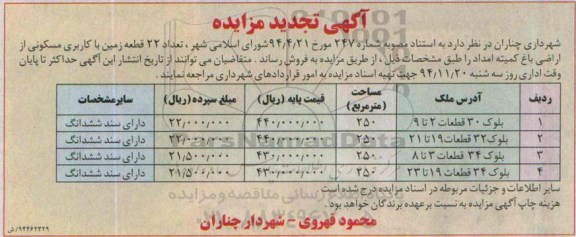 آگهی تجدید مزایده
شهرداری چناران در نظر دارد به استناد مصوبه شماره ۲۴۷ مورخ ۹۴/۴/۲۱شورای اسلامی شهر ، تعداد ۲۲ قطعه زمین با کاربری مسکونی از
اراضی باغ کمیته امداد را طبق مشخصات ذیل ، از طریق مزایده به فروش رساند . متقاضیان می توانند از تاریخ انتشار این آگهی حداکثر تا پایان
وقت اداری روز سه شنبه ۹۴/۱۱/۲۰ جهت تهیه اسناد مزایده به امور قراردادهای شهرداری مراجعه نمایند .
ردیف آدرس ملک مساحت (مترمربع) قیمت پایه (ریال) مبلغ سپرده (ریال) سایرمشخصات
۱ بلوک ۳۰ قطعات ۲ تا ۹ ۲۵۰ ۴۴۰/۰۰۰/۰۰۰ ۲۲/۰۰۰/۰۰۰ دارای سند ششدانگ
۲ بلوک ۳۲ قطعات ۱۹ تا ۲۱ ۲۵۰ ۴۴۰/۰۰۰/۰۰۰ ۲۲/۰۰۰/۰۰۰ دارای سند ششدانگ
۳ بلوک ۳۴ قطعات ۳ تا ۸ ۲۵۰ ۴۳۰/۰۰۰/۰۰۰ ۲۱/۵۰۰/۰۰۰ دارای سند ششدانگ
۴ بلوک ۳۴ قطعات ۱۹ تا ۲۳ ۲۵۰ ۴۳۰/۰۰۰/۰۰۰ ۲۱/۵۰۰/۰۰۰ دارای سند ششدانگ
سایر اطلاعات و جزئیات مربوطه در اسناد مزایده درج شده است
هزینه چاپ آگهی مزایده به نسبت بر عهده برندگان خواهد بود .
محمود قهروی - شهردار چناران
۹۴۴۶۲۳۲۹/ش